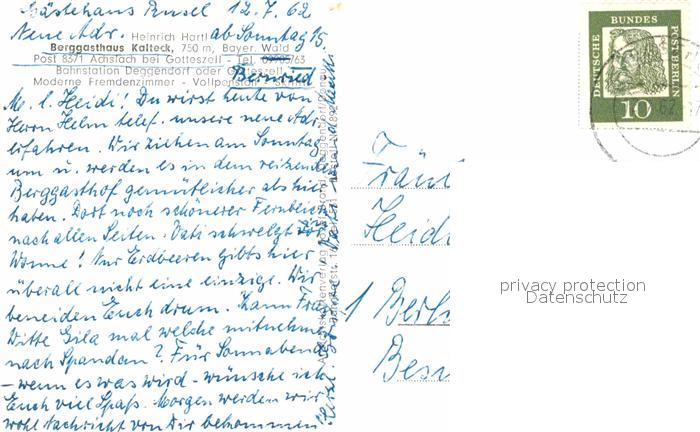 Gästehaus Ensel 12.7.62
Neue Adr. ab Sonntag 15.
Heinrich Hartl
Berggasthaus Kalteck, 750 m, Bayer. Wald
Post 8371 Achslach bei Gotteszell - Tel.
Bahnstation Deggendorf oder Gotteszell
Bernried
Moderne Fremdenzimmer - Vollpension
M. l. Heidi! Du wirst heute von
Herrn Helm telef. unsere neue Adr.
erfahren. Wir ziehen am Sonntag
um u. werden es in dem reizenden
Berggasthof gemütlicher als hier
haben. Dort noch schönerer Fernblick
nach allen Seiten. Vati schwelgt vor
Wonne! Nur Erdbeeren gibts hier
überall nicht eine einzige. Wir
beneiden Euch drum. Kann Frau
Witte Gila mal welche mitnehmen
nach Spandau? Für Sonnabend
- wenn es was wird - wünsche ich
Euch viel Spaß. Morgen werden wir
wohl Nachricht von Dir bekommen
Herzl.
Vati
DEUTSCHE BUNDESPOST BERLIN
10
62
Fräul
Heidi
1 Berli
privacy protection
Datenschutz